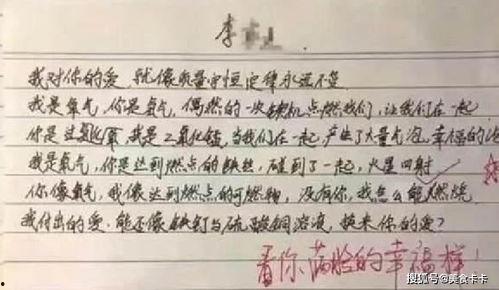 李
我对你的爱,就像质量守恒定律永远不变
我是氧气,你是氢气,偶然的一次契机点燃我们,让我们在一起
你是过氧化氢,我是二氧化锰,当我们在一起,产生了大量气泡,幸福的
我是氧气,你是达到燃点的铁丝,碰到了一起,火星四射
你像氧气,我像达到燃点的可燃物,没有你,我怎么能燃烧
我付出的爱,能否像铁钉与硫酸铜溶液,换来你的爱?
看你满脸的幸福样!
搜狐号@美食卡卡